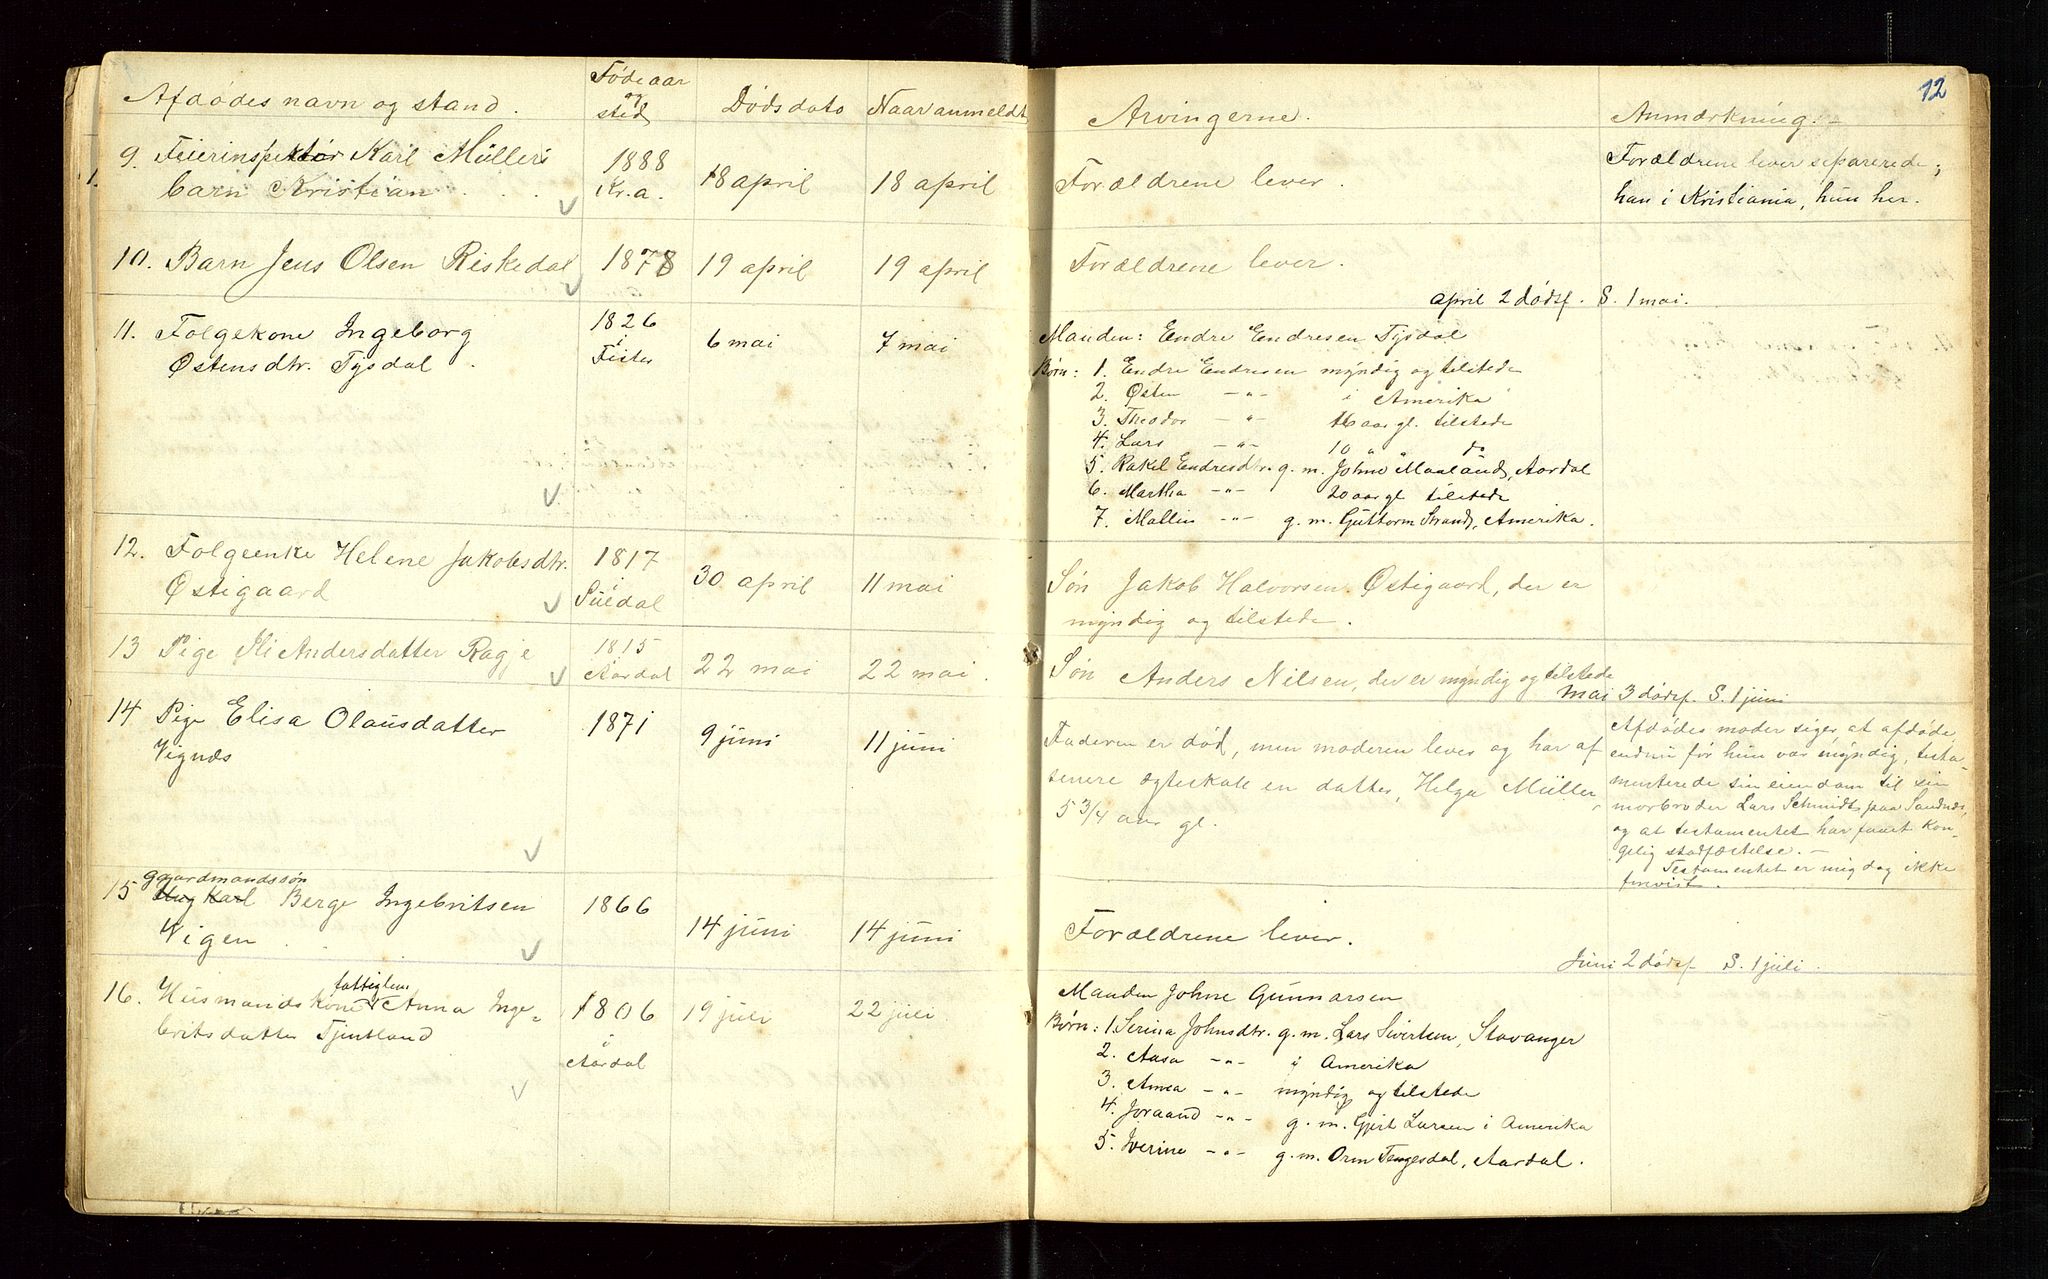 Afdødes navn og stand.
Fødeaar
og
sted
Dødsdato
Naar anmeldt
9. Feierinspektør Karl Müllers
barn Kristian . . .
1888
Kr.a.
18 april
18 april
10. Barn Jens Olsen Riskedal
1878
19 april
19 april
11. Folgekone Ingeborg
Østensdtr. Tysdal .
1826
i
Fister
6 mai
7 mai
12. Folgeenke Helene Jakobsdtr.
Østigaard
1817
i
Suldal
30 april
11 mai
13 Pige Ili Andersdatter Ragje
1815
Aardal
22 mai
22 mai.
14 Pige Elisa Olausdatter
Vignæs
1871
9 juni
11 juni
gaardmandssøn
15 Ung Karl Berge Ingebritsen
Vigen . .
1866
14 juni
14 juni
fattiglem
16. Husmandskone Anna Inge-
britsdatter Tjentland
1806
i
Aardal
19 juli
22 juli
12
Arvingerne.
Anmærkning.
Forældrene lever.
Forældrene lever separerede;
han i Kristiania, hun her.
Forældrene lever.
april 2 dødsf. S. 1 mai.
Manden: Endre Endresen Tysdal
Børn: 1. Endre Endresen myndig og tilstede
2. Østen -"- i Amerika
3. Theodor -"- 16 aar gl. tilstede
4. Lars -"- 10 " " do
5. Rakel Endresdtr. g. m. Johne Maaland, Aardal
6. Martha -"- 20 aar gl tilstede
7. Mallin -"- g. m. Guttorm Strand, Amerika.
Søn Jakob Halvorsen Østigaard, der er
myndig og tilstede.
Søn Anders Nilsen, der er myndig og tilstede
Mai 3 dødsf. S. 1 juni
Faderen er død, men moderen lever og har af
senere ægteskab en datter, Helga Müller,
5 3/4 aar gl.
Afdødes moder siger, at afdøde,
endnu før hun var myndig, testa-
menterede sin eiendom til sin
morbroder Lars Schmidt paa Sandnes,
og at testamentet har faaet kon-
gelig stadfæstelse. -
Testamentet er mig dog ikke
forevist.
Forældrene lever.
Juni 2 dødsf. S. 1 juli.
Manden Johne Gunnarsen
Børn: 1. Serina Johnsdtr. g. m. Lars Sivertsen, Stavanger
2. Aasa -"- i Amerika
3. Anna -"- myndig og tilstede
4. Joraand -"- g. m. Gjert Larsen i Amerika
5. Iverine -"- g. m. Orm Tengesdal, Aardal.